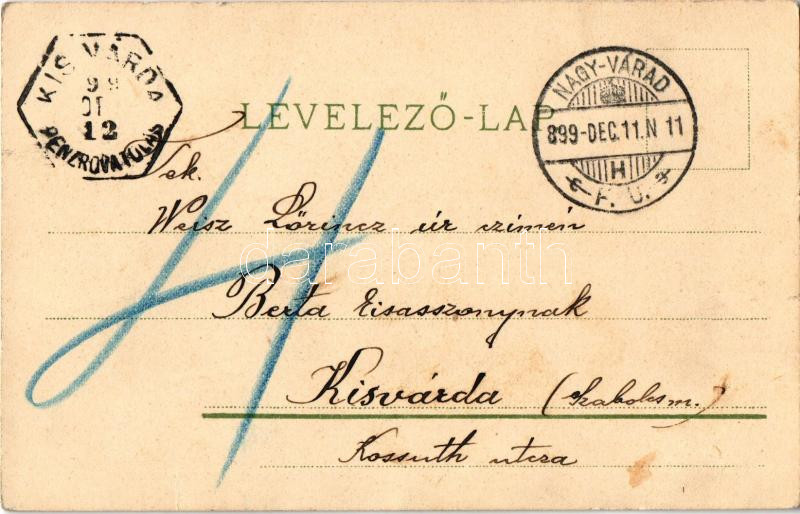 KIS VÁRDA
99
12
LEVELEZŐ-LAP
NAGY-VÁRAD
899-DEC.11.N 11
H
F. U.
Weisz Lőrincz úr czimén
darabanth
Berta kisasszonynak
Kisvárda (Szabolcs m.)
Kossuth utcza
4